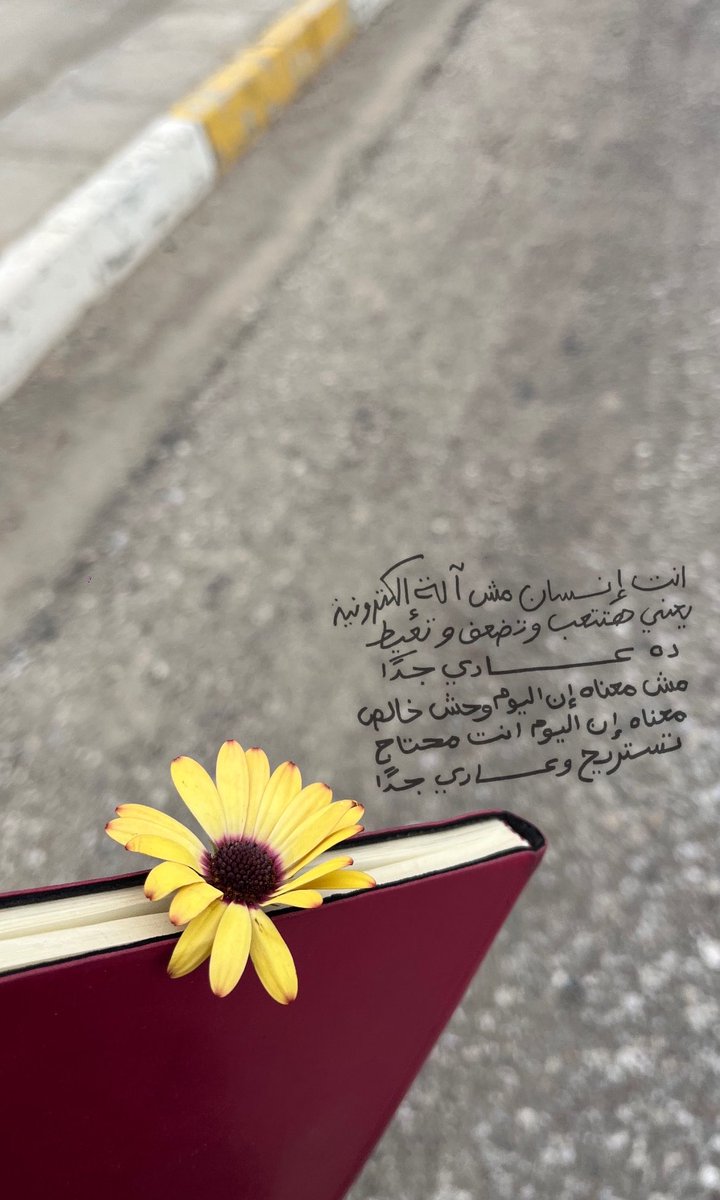 انت إنسان مش آلة إلكترونية
يعني هتتعب وتضعف و تعيط
ده عـــادي جدًا
مش معناه إن اليوم وحش خالص
معناه إن اليوم انت محتاج
تستريح وعـــادي جدًا